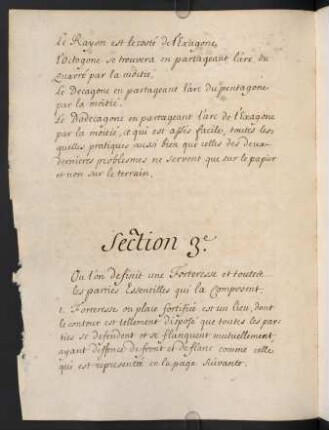 Le Rayon est le costé de l'Exagone,
l'Octogone se trouvera en partageant l'arc du
Quarré par la moitié.
Le Decagone en partageant l'arc du pentagone
par la moitié.
Le Dodecagone en partageant l'arc de l'Exagone
par la moitié, ce qui est assés facile, toutes les
quelles pratiques aussi bien que celles des deux
dernieres problesmes ne servent que sur le papier
et non sur le terrain.
Section 3.e
Ou l'on definit une Forteresse et toutes
les parties Essentilles qui la Composent.
1. Forteresse ou place fortifiée est un lieu, dont
le contour est tellement disposé que toutes les par
ties se defendent et se flanquent mutuellement,
ayant deffence de front et de flanc comme celle
qui est representée en la page suivante.